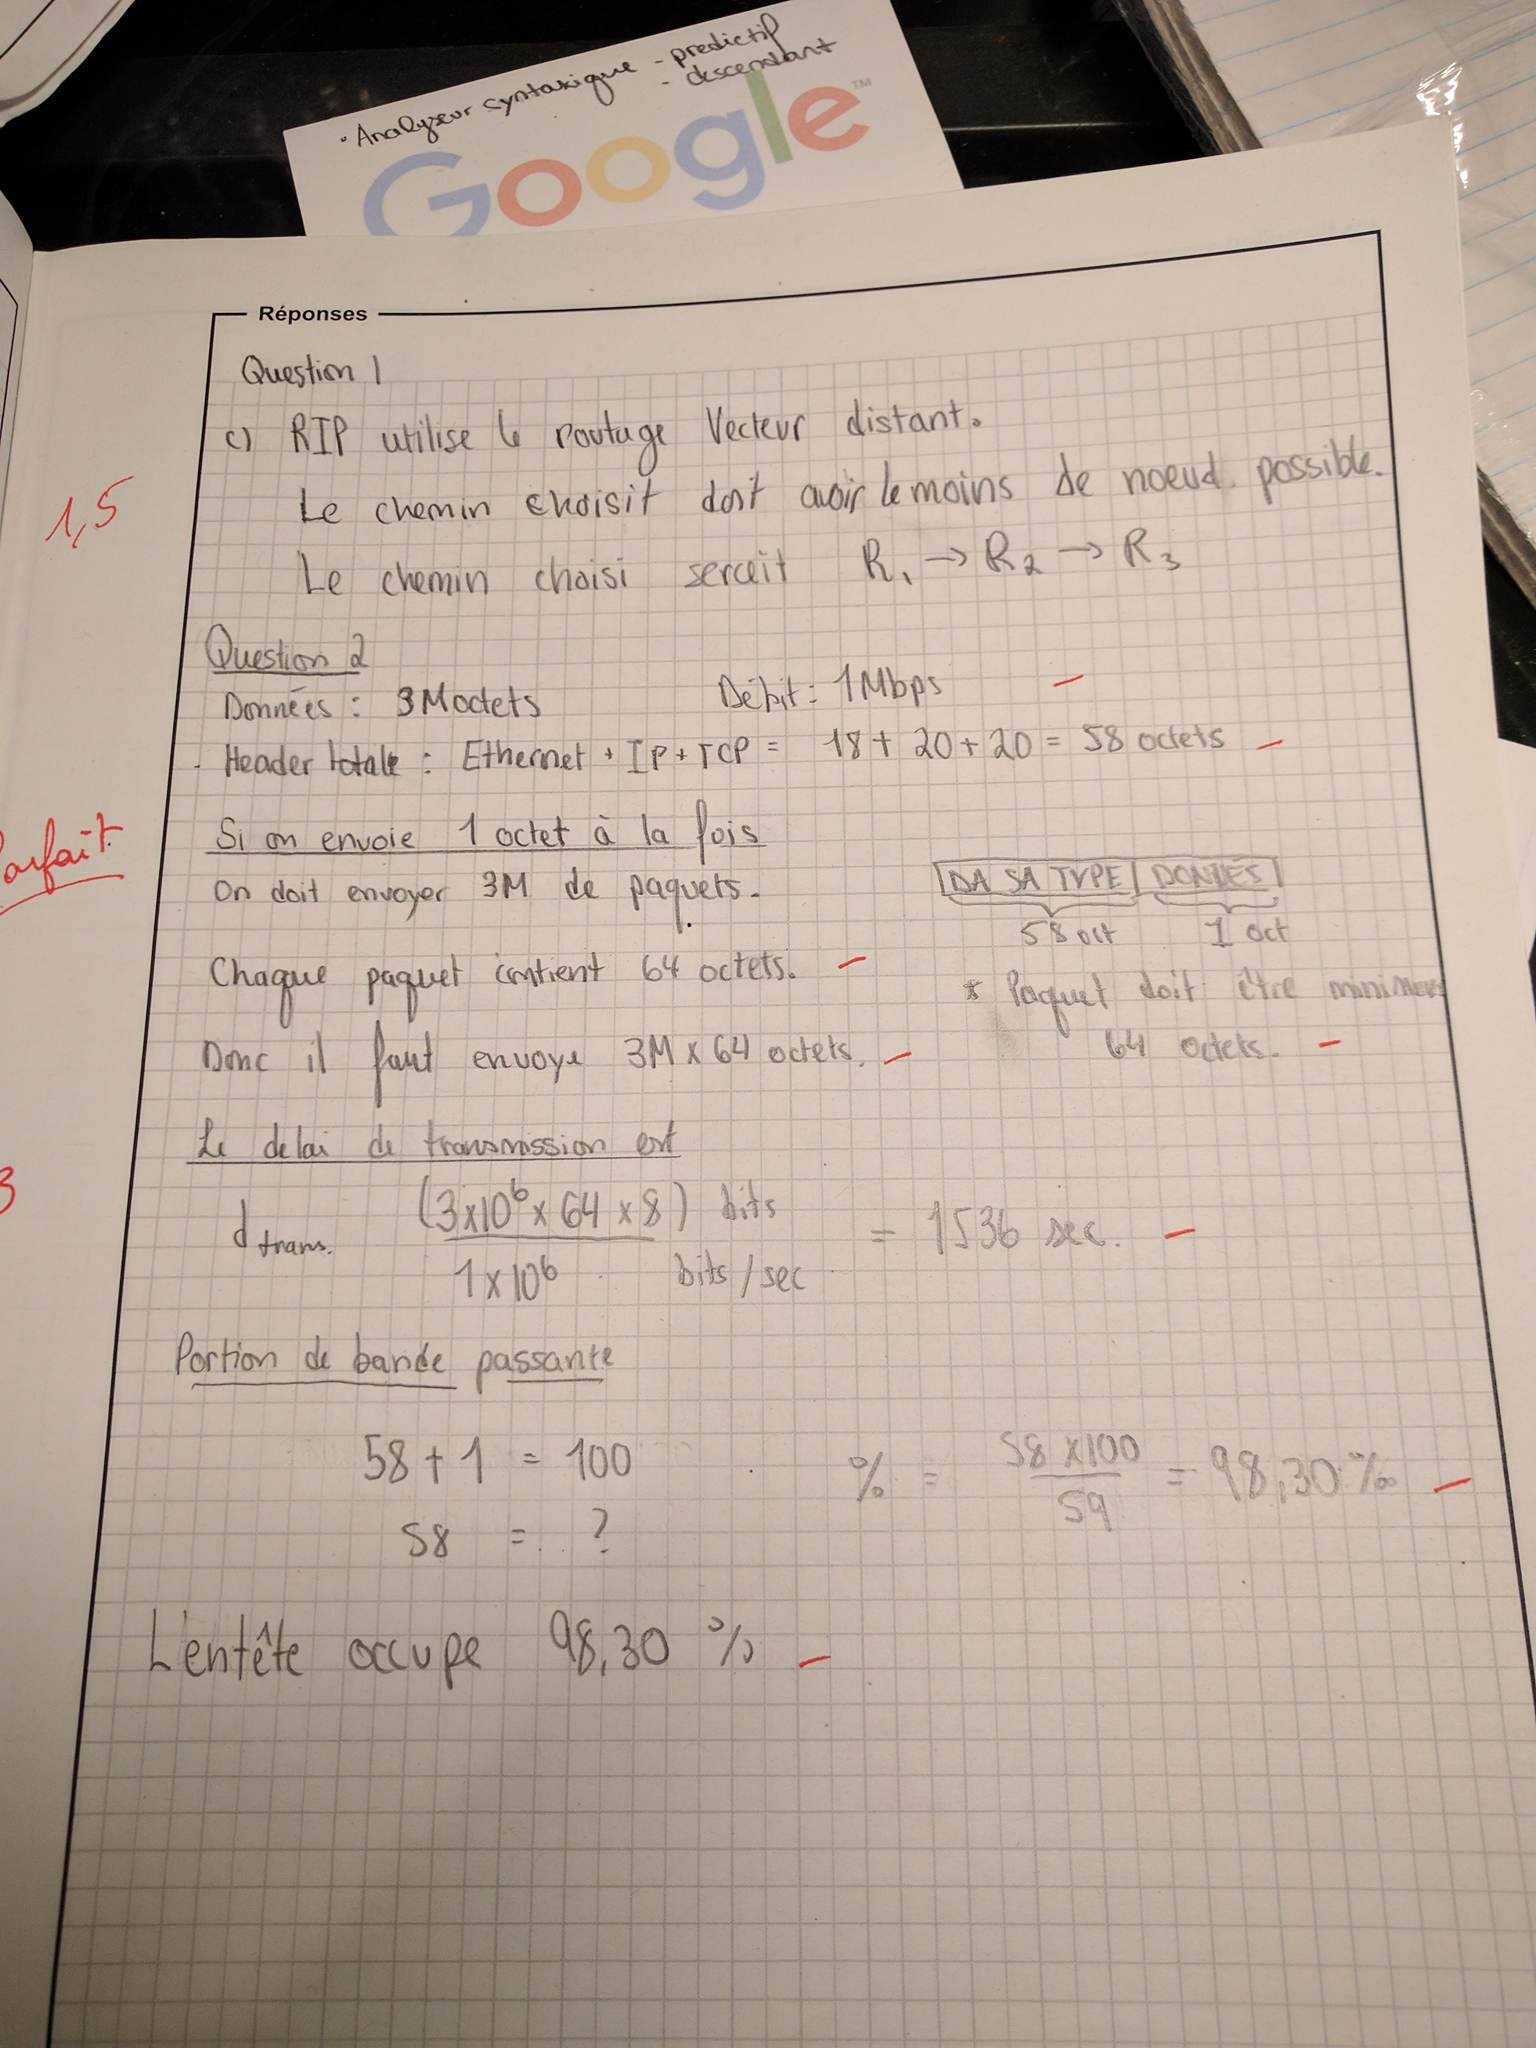 • Analyseur syntaxique - predictif
- descendant
Google™
Réponses
Question 1
c) RIP utilise le routage Vecteur distant.
Le chemin choisit doit avoir le moins de noeud possible.
1,5
Le chemin choisi serait R1 → R2 → R3
Question 2
Données : 3Moctets Débit : 1Mbps
Header totale : Ethernet + IP + TCP = 18 + 20 + 20 = 58 octets
Si on envoie 1 octet à la fois
Parfait.
On doit envoyer 3M de paquets.
DA SA TYPE DONNÉS
58 oct 1 oct
Chaque paquet contient 64 octets.
* Paquet doit être minimum
64 octets.
Donc il faut envoye 3M x 64 octets.
Le delai de transmission est
3
d trans. (3x10⁶ x 64 x 8) bits = 1536 sec.
1 x 10⁶ bits/sec
Portion de bande passante
58 + 1 = 100
58 = ?
% = 58 x 100 = 98,30 %
59
L'entête occupe 98,30 %